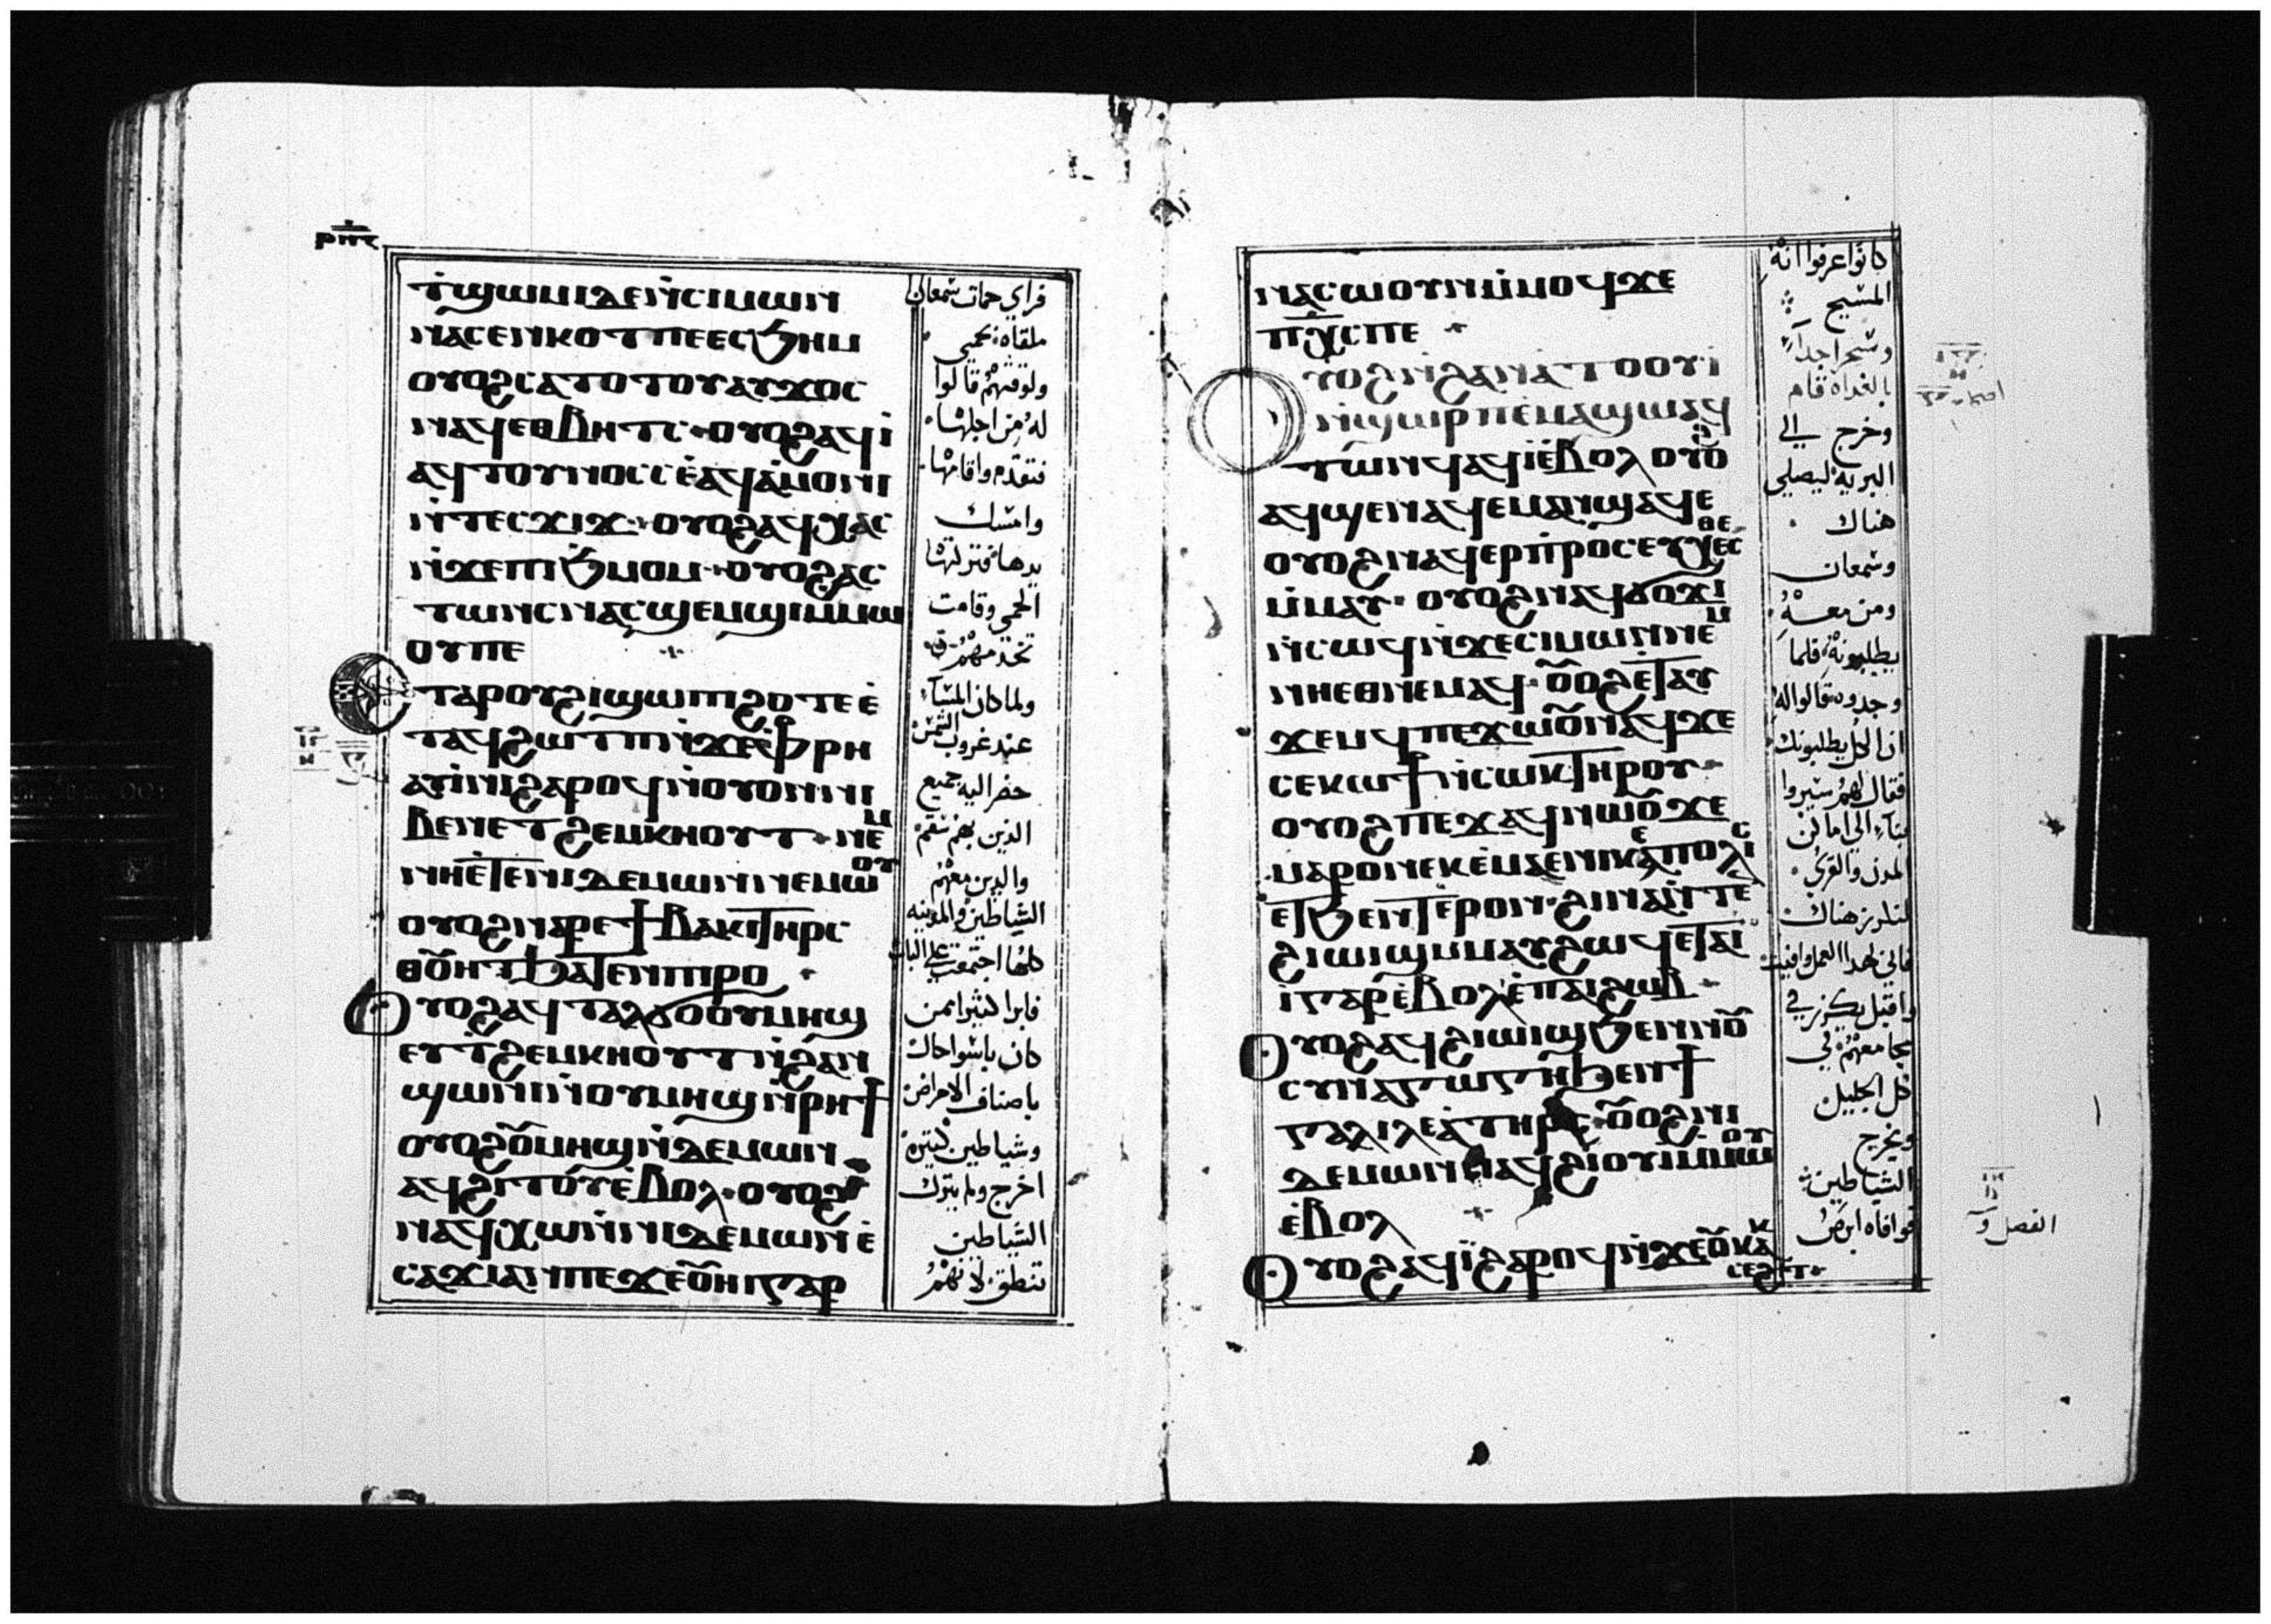 ⲣⲡⲋ
ⲧ̀ϣⲱⲙⲓⲇⲉⲛ̀ⲥⲓⲙⲱⲛ
ⲛⲁⲥⲉⲛⲕⲟⲧⲡⲉⲉⲥϧⲏⲙ
ⲟⲩⲟϩⲥⲁⲧⲟⲧⲟⲩⲁⲩϫⲟⲥ
ⲛⲁϥⲉⲑⲃⲏⲧⲥ ⲟⲩⲟϩⲁϥⲓ̀
ⲁϥⲧⲟⲩⲛⲟⲥⲥⲉ̀ⲁϥⲁ̀ⲙⲟⲛⲓ
ⲛ̀ⲧⲉⲥϫⲓϫ ⲟⲩⲟϩⲁϥⲭⲁⲥ
ⲛ̀ϫⲉⲡⲓϧⲙⲟⲙ ⲟⲩⲟϩⲁⲥ
ⲧⲱⲛⲥⲛⲁⲥϣⲉⲙϣⲓⲙⲙⲱ
ⲟⲩⲡⲉ
ⲉⲧⲁⲣⲟⲩϩⲓϣⲱⲡⲓϩⲟⲧⲉⲉ̀
ⲧⲁϥϩⲱⲧⲡⲛ̀ϫⲉⲫⲣⲏ
ⲁⲩⲓ̀ⲛⲓϩⲁⲣⲟϥⲛ̀ⲟⲩⲟⲛⲛⲓ
ⲃⲉⲛⲉⲧϩⲉⲙⲕⲏⲟⲩⲧ ⲛⲉⲙ
ⲛⲏⲉ̀ⲧⲉⲛⲓⲇⲉⲙⲱⲛⲛⲉⲙⲱⲟⲩ
ⲟⲩⲟϩⲛⲁⲣⲉϯⲃⲁⲕⲓⲧⲏⲣⲥ
ⲑⲟ̅ⲏⲧϧⲁⲧⲉⲛⲡⲓⲣⲟ
ⲟⲩⲟϩⲁϥⲧⲁⲗϭⲟⲟⲩⲙⲏϣ
ⲉⲩⲧ̀ϩⲉⲙⲕⲏⲟⲩⲧⲛ̀ϩⲁⲛ
ϣⲱⲛⲓⲛ̀ⲟⲩⲙⲏϣⲛ̀ⲣⲏϯ
ⲟⲩⲟϩⲟ̅ⲙⲏϣⲛ̀ⲇⲉⲙⲱⲛ
ⲁϥϩⲓⲧⲟⲩⲉ̀ⲃⲟⲗ ⲟⲩⲟϩ
ⲛⲁϥⲭⲱⲛ̀ⲛⲓⲇⲉⲙⲱⲛⲉ̀
ⲥⲁϫⲓⲁⲛⲡⲉϫⲉⲟ̅ⲏⲓⲅⲁⲣ
فراي حمات شمعان
ملقاه بحمي
ولوقتهم قالوا
له من اجلها
فتقدم واقامها
وامسك
يدها فتركتها
الحمي وقامت
تخدمهم
ولما كان المساء
عند غروب الشمس
حضر اليه جميع
الذين بهم سقم
والذين معهم
الشياطين والمدينه
كلها اجتمعت علي الباب
فابرا كثيرا ممن
كان باسوا حال
باصناف الامراض
وشياطين كثيرة
اخرج ولم يترك
الشياطين
تنطق لانهم
ⲛⲁⲥⲱⲟⲩⲛⲙ̀ⲙⲟϥϫⲉ
ⲡⲭ̅ⲥⲡⲉ
ⲟⲩⲟϩⲛ̀ϩⲁⲛⲁ̀ⲧⲟⲟⲩⲓ̀
ⲛ̀ϣⲱⲣⲡⲉ̀ⲙⲁϣⲱⲁϥ
ⲧⲱⲛϥⲁϥⲓ̀ⲉ̀ⲃⲟⲗⲟⲩⲟϩ
ⲁϥϣⲉⲛⲁϥⲉⲙⲁⲛϣⲁϥⲉ
ⲟⲩⲟϩⲛⲁϥⲉⲣⲡ̀ⲣⲟⲥⲉⲩⲭⲉⲥⲑⲉ
ⲙ̀ⲙⲁⲩ ⲟⲩⲟϩⲛⲁϥϭⲟϫⲓ
ⲛ̀ⲥⲱϥⲛ̀ϫⲉⲥⲓⲙⲱⲛⲛⲉⲙ
ⲛⲏⲉⲑⲛⲉⲙⲁϥ ⲟ̅ⲟϩⲉ̀ⲧⲁⲩ
ϫⲉⲙϥⲡⲉϫⲱⲟ̅ⲛⲁϥϫⲉ
ⲥⲉⲕⲱϯⲛ̀ⲥⲱⲕⲧⲏⲣⲟⲩ
ⲟⲩⲟϩⲡⲉϫⲁϥⲛⲱⲟ̅ϫⲉ
ⲙⲁⲣⲟⲛⲉⲕⲉ̀ⲙⲁⲉⲛⲓⲕⲉⲁⲡⲟⲗⲓⲥ
ⲉⲧϧⲉⲛⲧⲉⲣⲟⲛ ϩⲓⲛⲁⲛ̀ⲧⲉ
ϩⲓⲱⲓϣⲙⲙⲁⲩϩⲱϥⲉⲧⲁⲓ
ⲓ̀ⲅⲁⲣⲉ̀ⲃⲟⲗⲉ̀ⲡⲁⲓϩⲱⲃ
ⲟⲩⲟϩⲁϥϩⲓⲱⲓϣϧⲉⲛⲛⲟ̅
ⲥⲩⲛⲁⲅⲱⲅⲏϧⲉⲛϯ
ⲅⲁⲗⲓⲗⲉⲁ̀ⲧⲏⲣⲥ ⲟ̅ⲟϩⲛⲓ
ⲇⲉⲙⲱⲛⲛⲁϥϩⲓⲟⲩⲓⲙⲙⲱⲟⲩ
ⲉ̀ⲃⲟⲗ
ⲟⲩⲟϩⲁϥⲓ̀ϩⲁⲣⲟϥⲛ̀ϫⲉⲟ̅ⲕⲁⲕ
ⲥⲉϩⲧ
كانوا عرفوا انه
المسيح
وسحرا جدا
بالغداة قام
وخرج الي
البرية ليصلي
هناك
وشمعان
ومن معه
يطلبونه فلما
وجدوه قالوا له
ان الكل يطلبونك
فقال لهم سيروا
بنا الي اماكن
المدن والقري
لنكرز هناك
فاني لهذا العمل وافيت
واقبل يكرز في
مجامعهم في
كل الجليل
ويخرج
الشياطين
فوافاه ابرص
الفصل و